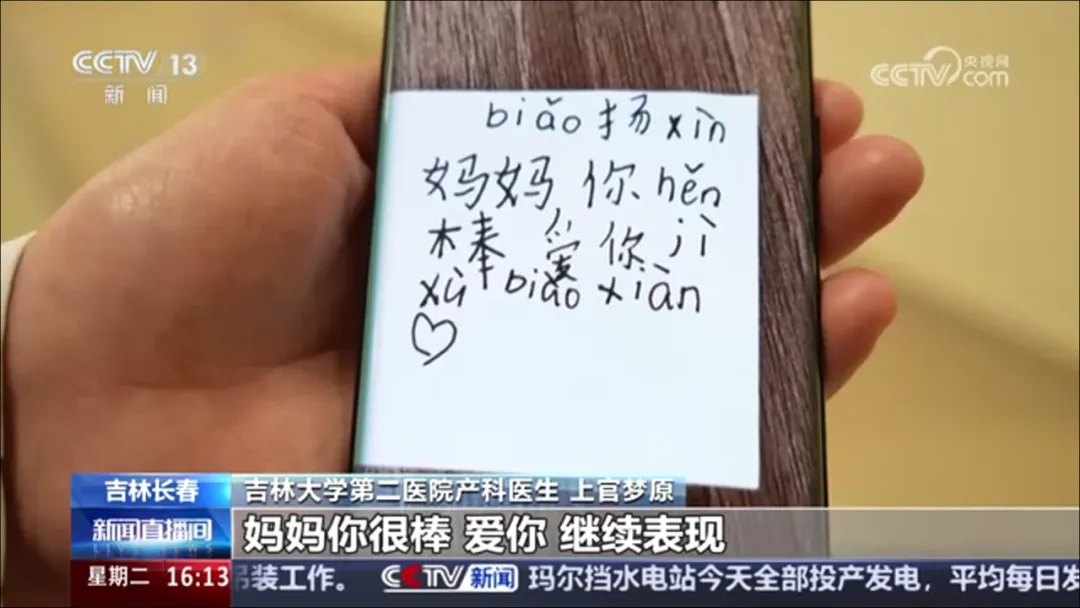 CCTV 13
新闻
央视网
CCTV.com
biǎo扬xìn
妈妈 你hěn
棒 爱你 jì
xù biǎo xiàn
♡
吉林长春
吉林大学第二医院产科医生 上官梦原
新闻直播间
妈妈你很棒 爱你 继续表现
星期二 16:13
吊装工作。 CCTV新闻 玛尔挡水电站今天全部投产发电，平均每日发